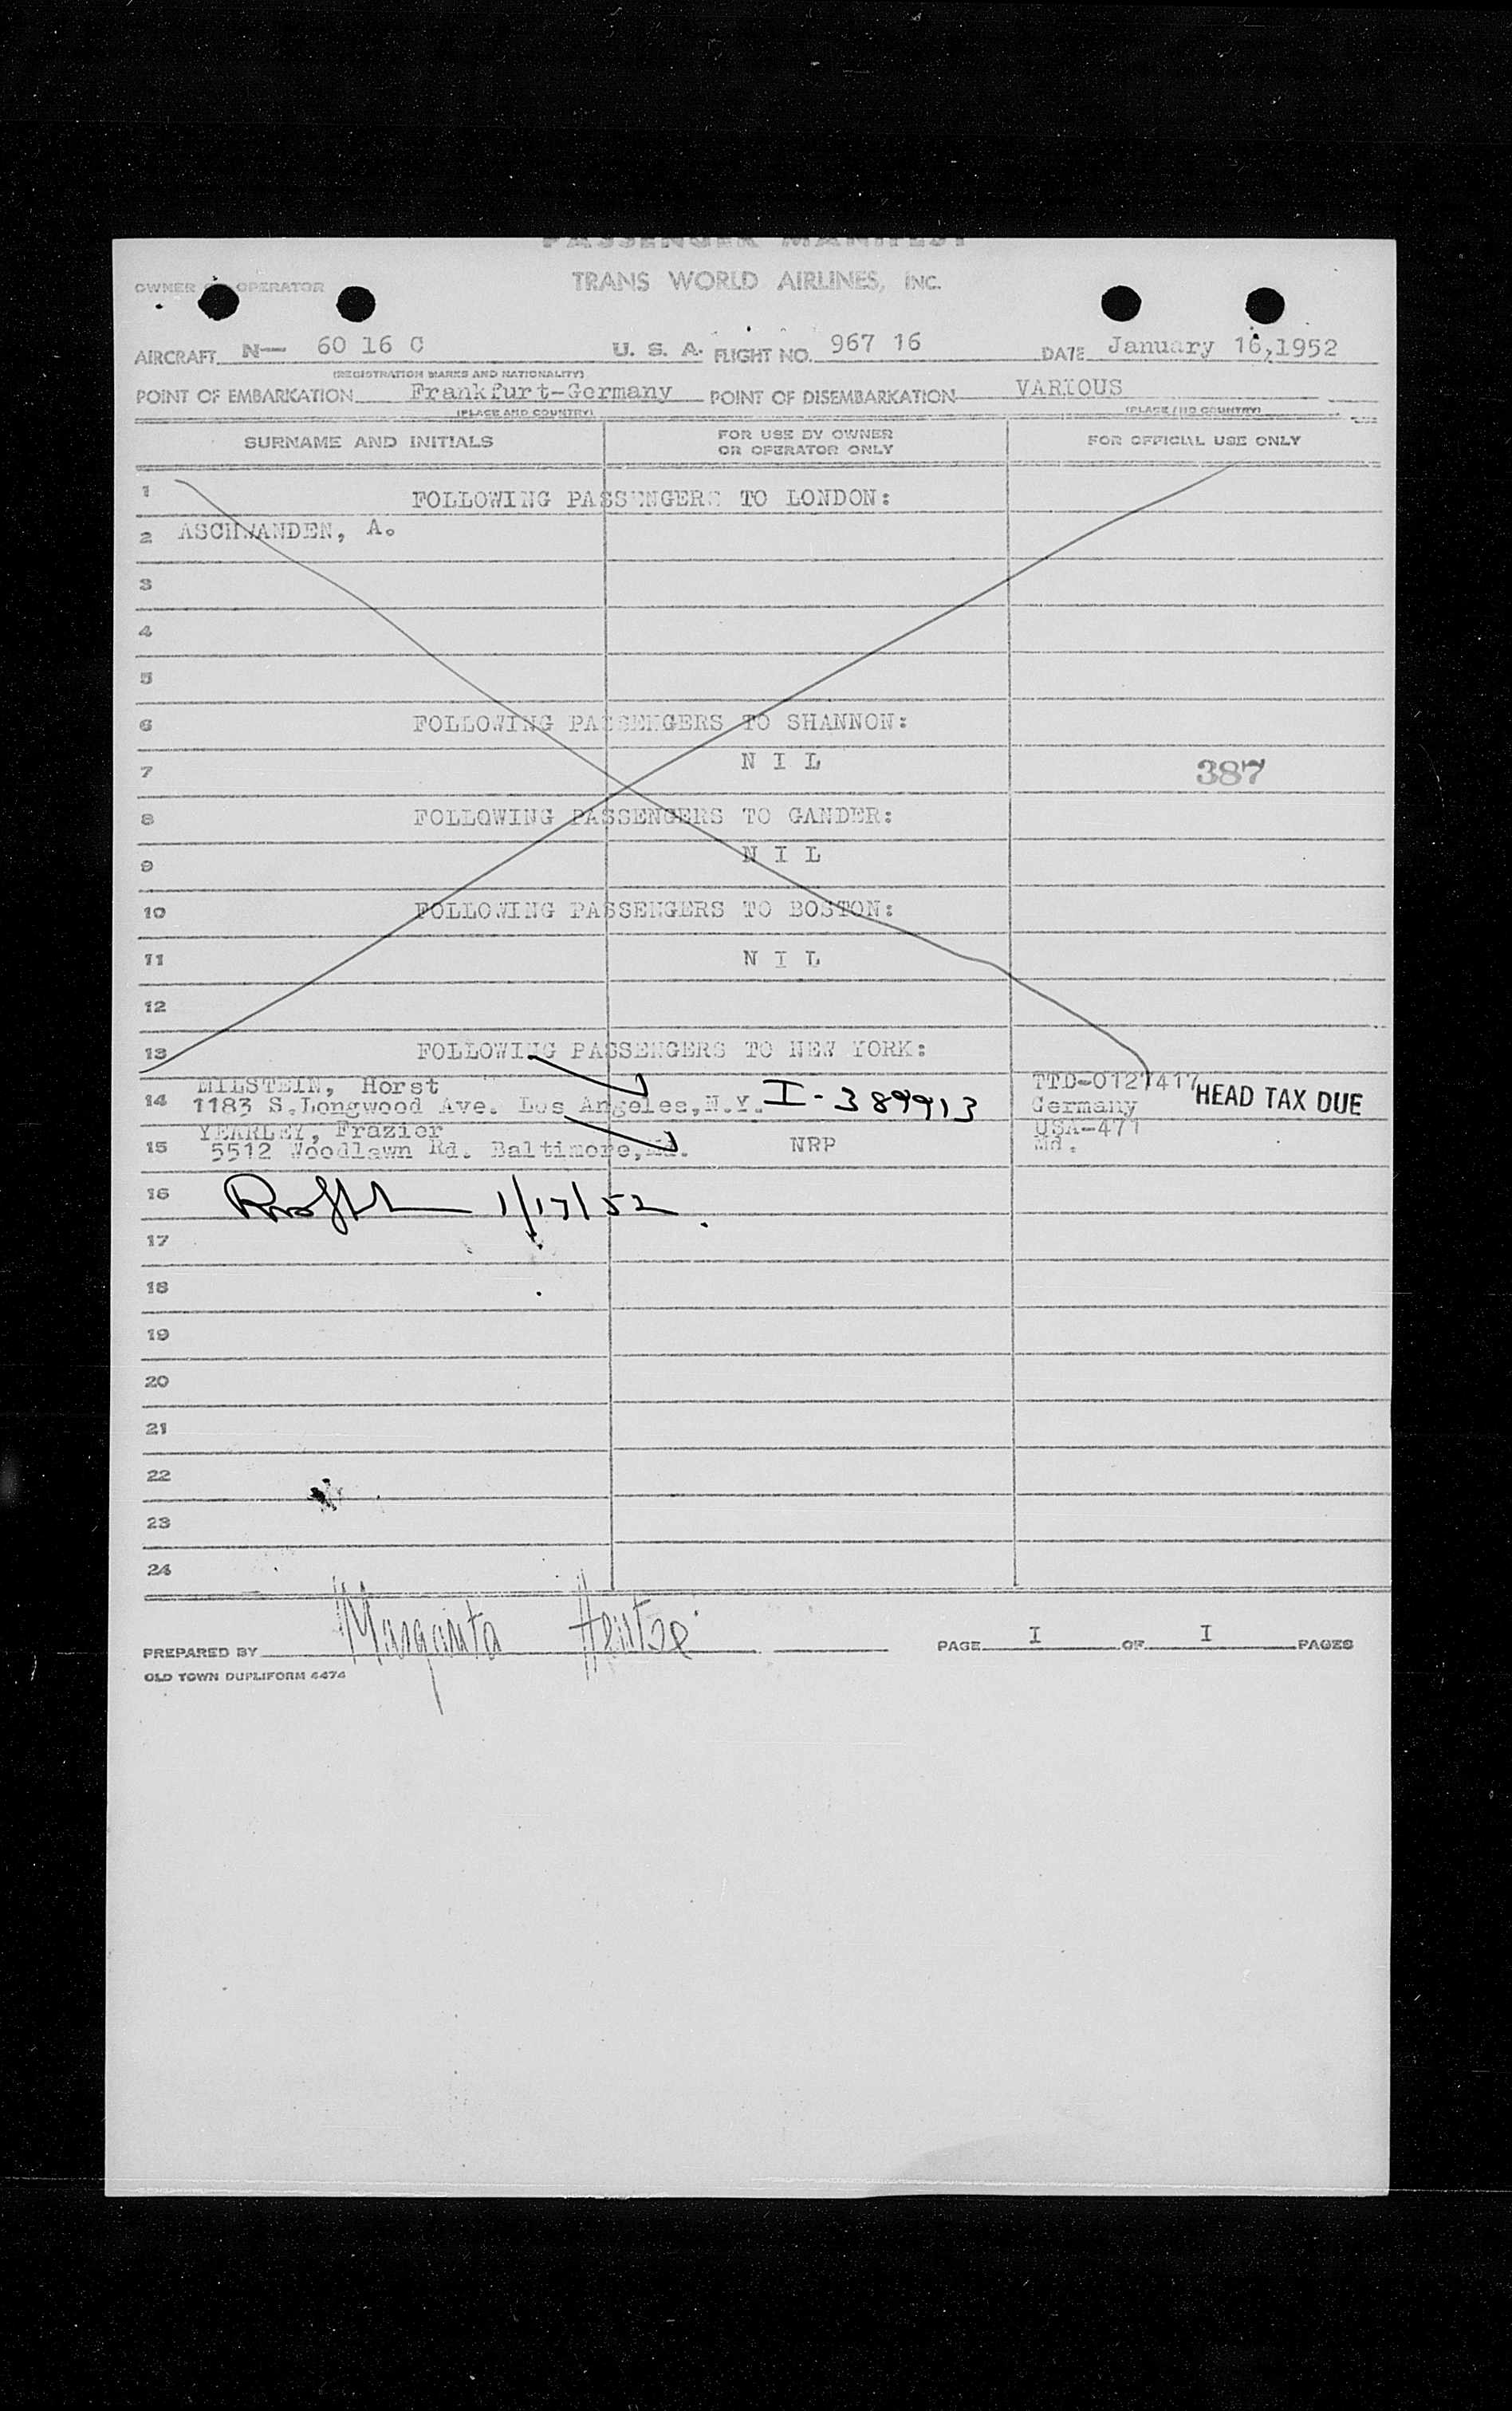 PASSENGER MANIFEST
OWNER OR OPERATOR
TRANS WORLD AIRLINES, INC.
AIRCRAFT N— 60 16 C U. S. A. FLIGHT NO. 967 16 DATE January 16,1952
(REGISTRATION MARKS AND NATIONALITY)
POINT OF EMBARKATION Frankfurt-Germany POINT OF DISEMBARKATION VARIOUS
(PLACE AND COUNTRY) (PLACE AND COUNTRY)
SURNAME AND INITIALS FOR USE BY OWNER OR OPERATOR ONLY FOR OFFICIAL USE ONLY
1 FOLLOWING PASSENGERS TO LONDON:
2 ASCHWANDEN, A.
3
4
5
6 FOLLOWING PASSENGERS TO SHANNON:
7 N I L 387
8 FOLLOWING PASSENGERS TO GANDER:
9 N I L
10 FOLLOWING PASSENGERS TO BOSTON:
11 N I L
12
13 FOLLOWING PASSENGERS TO NEW YORK:
MILSTEIN, Horst TTD-0127417
14 1183 S.Longwood Ave. Los Angeles,N.Y. I-389913 Germany HEAD TAX DUE
YEARLEY, Frazier USA-471
15 5512 Woodlawn Rd. Baltimore,Md. NRP Md.
16 1/17/52
17
18
19
20
21
22
23
24
PREPARED BY Margarita Hentze PAGE I OF I PAGES
OLD TOWN DUPLIFORM 4474